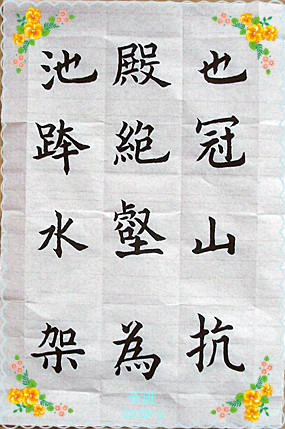 也冠山抗
殿絕壑為
池跨水架